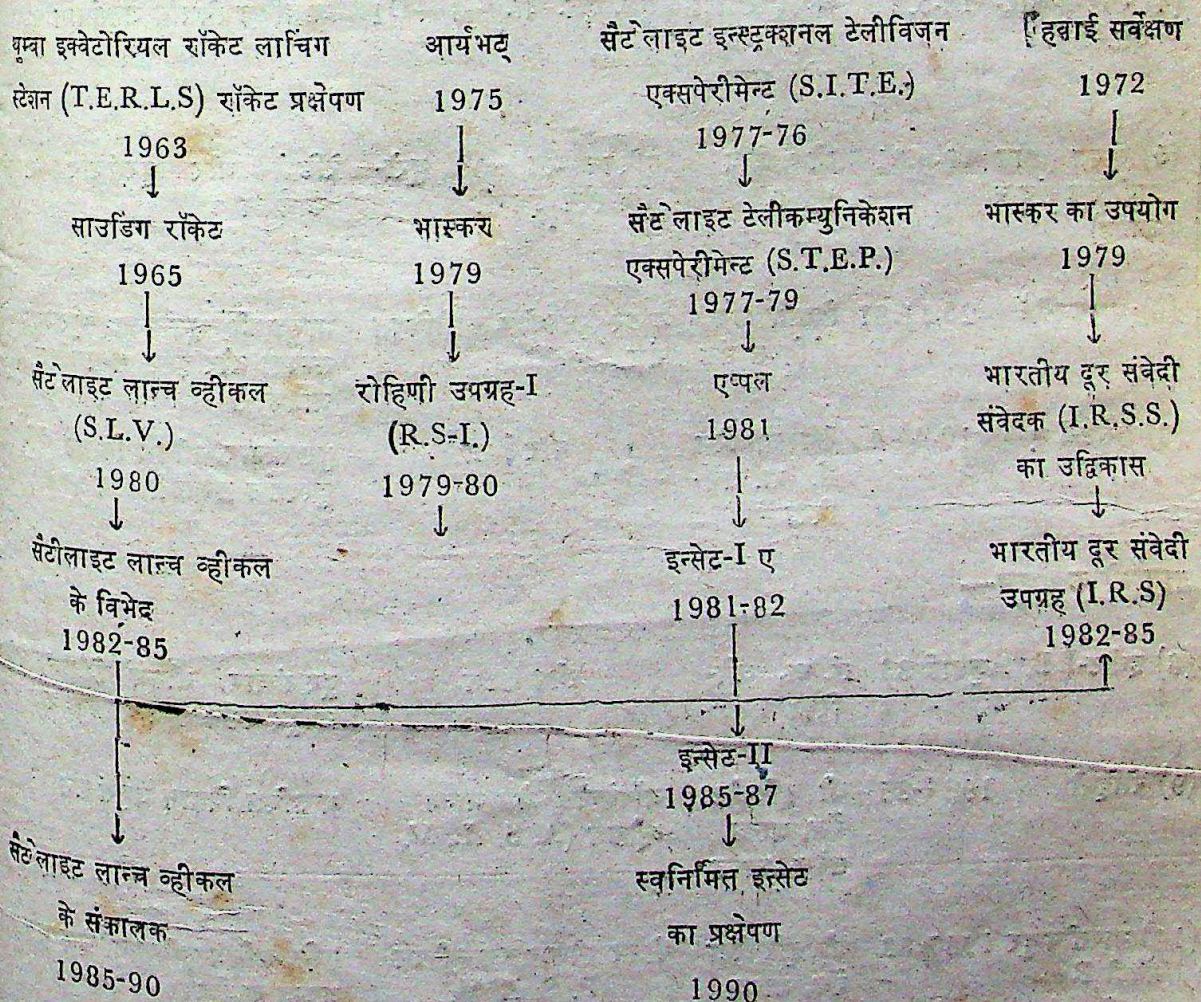 थुम्बा इक्वेटोरियल रॉकेट लाचिंग
स्टेशन (T.E.R.L.S) रॉकेट प्रक्षेपण
1963
साउडिंग रॉकेट
1965
सैटेलाइट लान्च व्हीकल
(S.L.V.)
1980
सैटीलाइट लान्च व्हीकल
के विभेद
1982-85
सैटेलाइट लान्च व्हीकल
के संकालक
1985-90
आर्यभट्
1975
भास्कर
1979
रोहिणी उपग्रह-I
(R.S-I.)
1979-80
सैटेलाइट इन्स्ट्रक्शनल टेलीविजन
एक्सपेरीमेन्ट (S.I.T.E.)
1977-76
सैटेलाइट टेलीकम्युनिकेशन
एक्सपेरीमेन्ट (S.T.E.P.)
1977-79
एप्पल
1981
इन्सेट-I ए
1981-82
इन्सेट-II
1985-87
स्वनिर्मित इन्सेट
का प्रक्षेपण
1990
हवाई सर्वेक्षण
1972
भास्कर का उपयोग
1979
भारतीय दूर संवेदी
संवेदक (I.R.S.S.)
का उद्विकास
भारतीय दूर संवेदी
उपग्रह (I.R.S)
1982-85